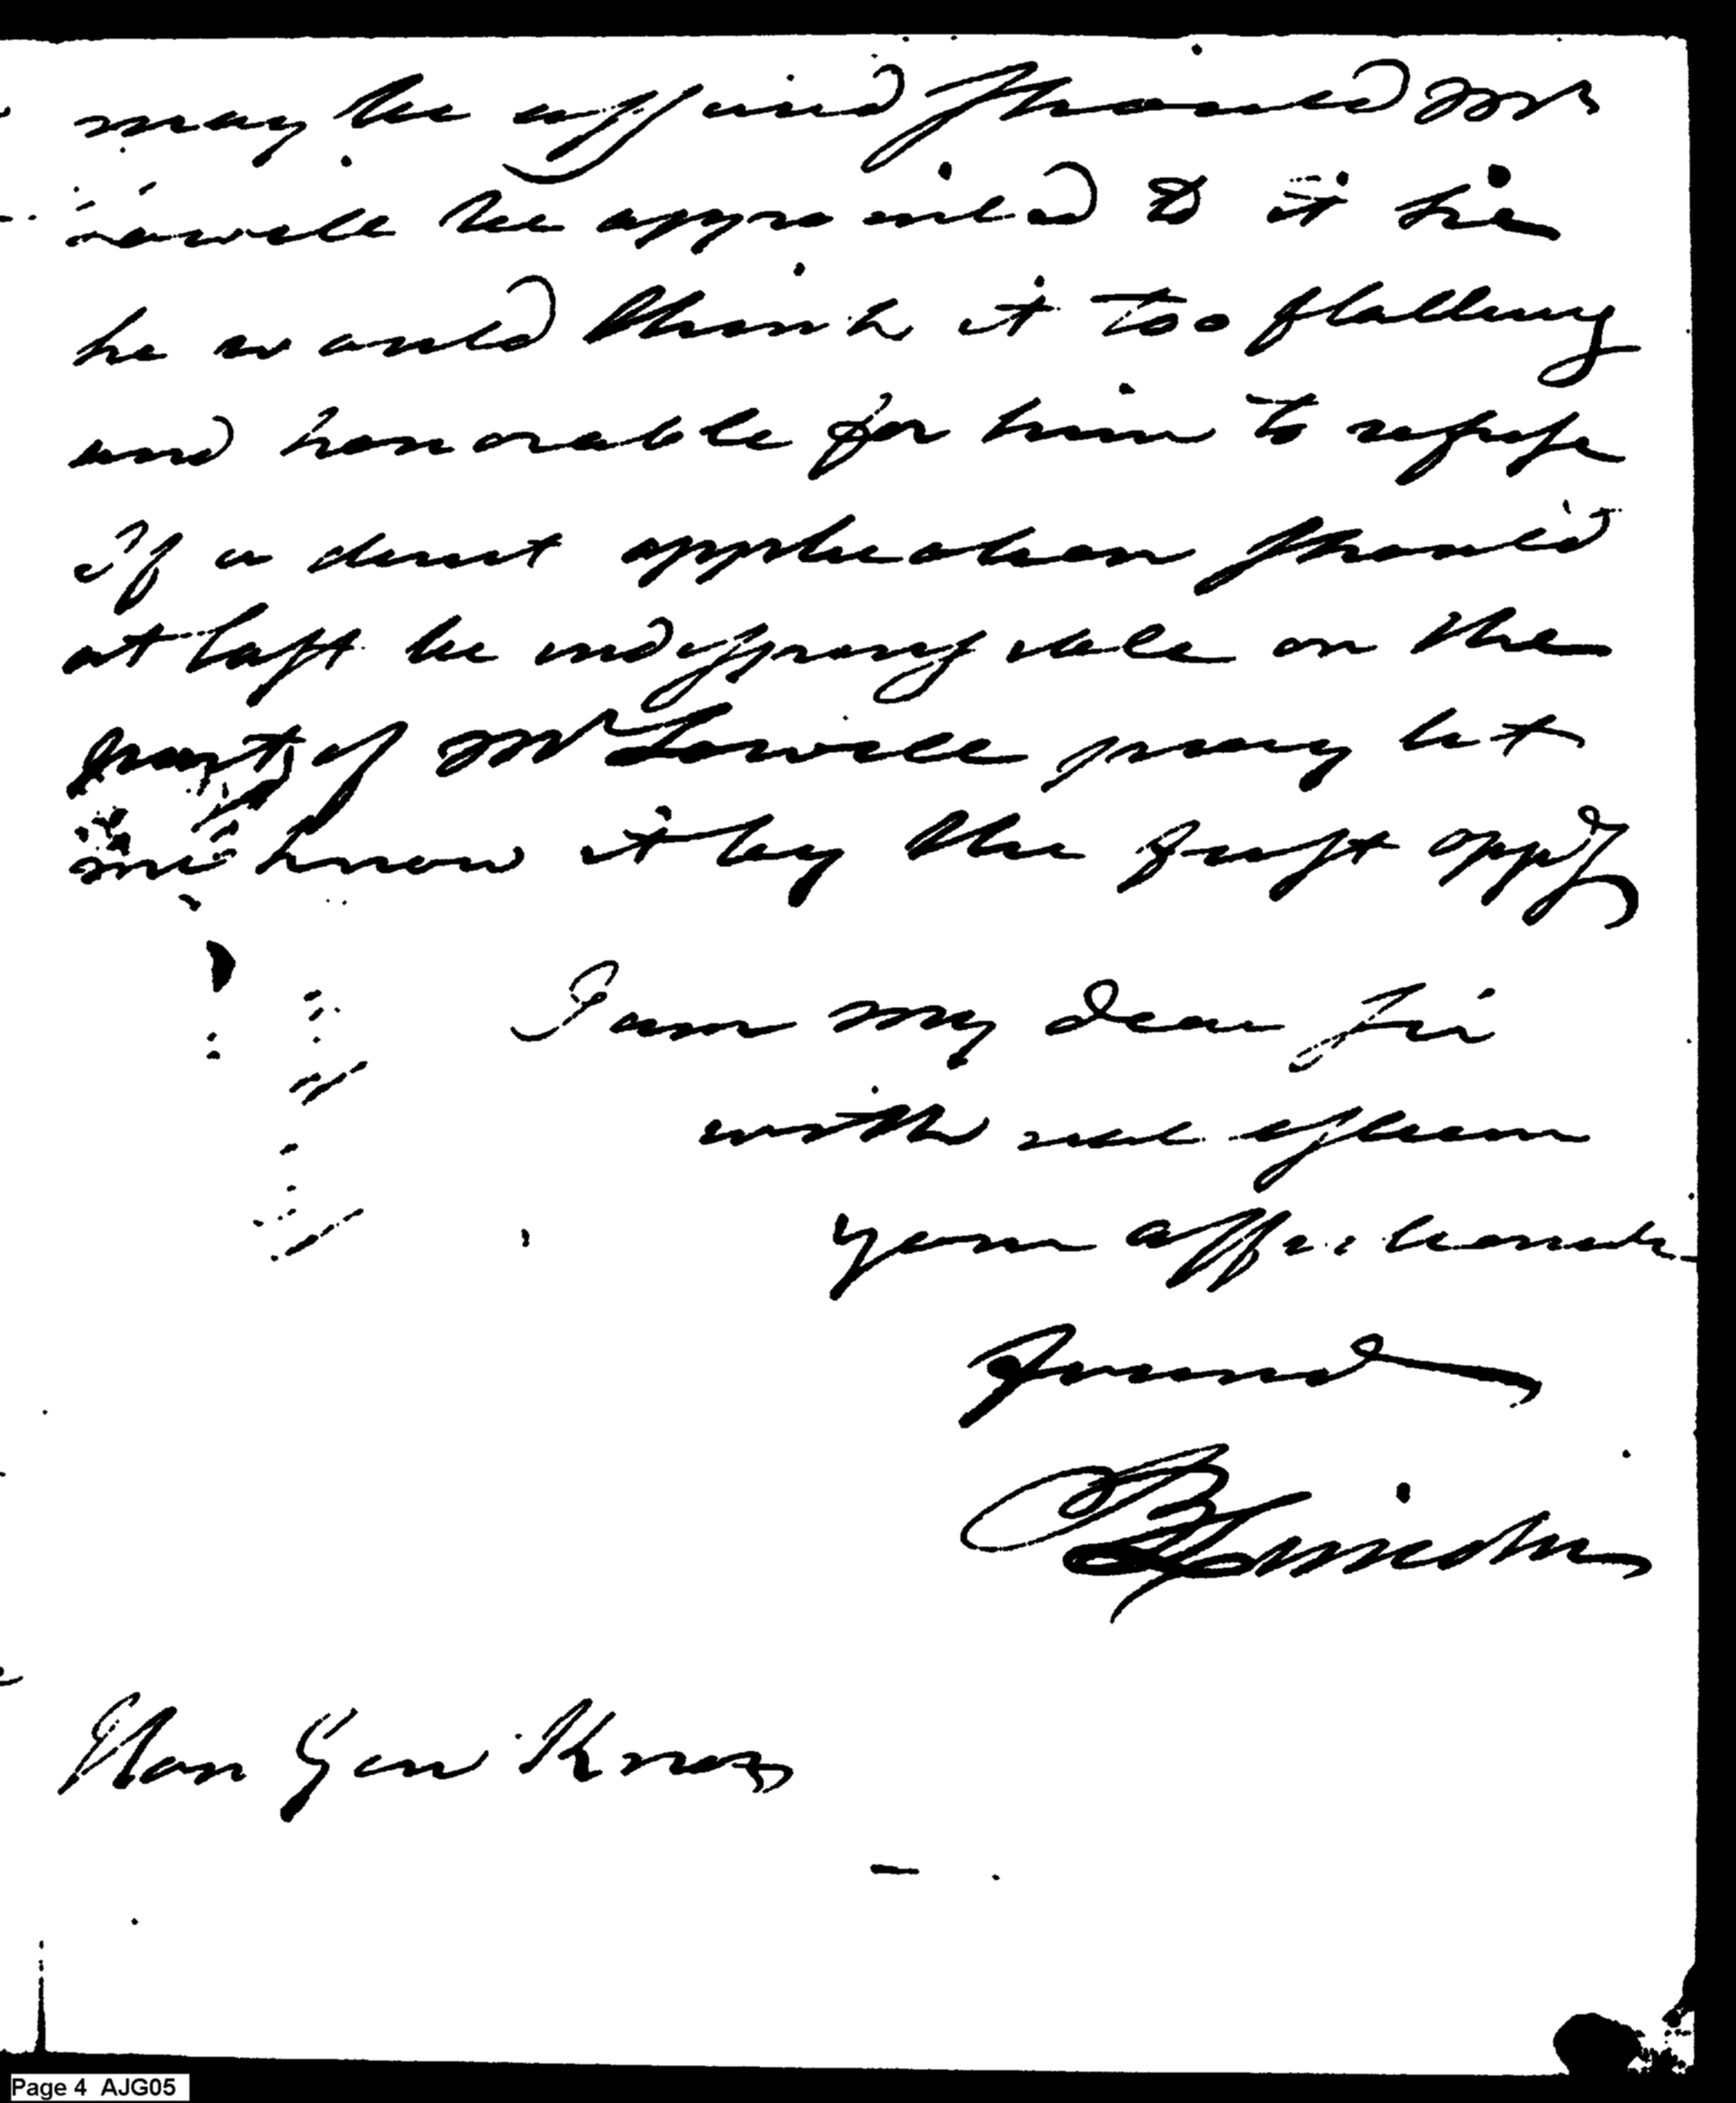 may be assigned should Mr
Lowell be appointed to it he
he would think it too flattering
and honorable for him to refuse
if a direct application should
at last be indispensable on the
part of Mr Lowell pray let
me know it by the first oppy
I am my dear Sir
with real esteem
your affectionate
friend
B Lincoln
Hon Gen Knox
Page 4 AJG05